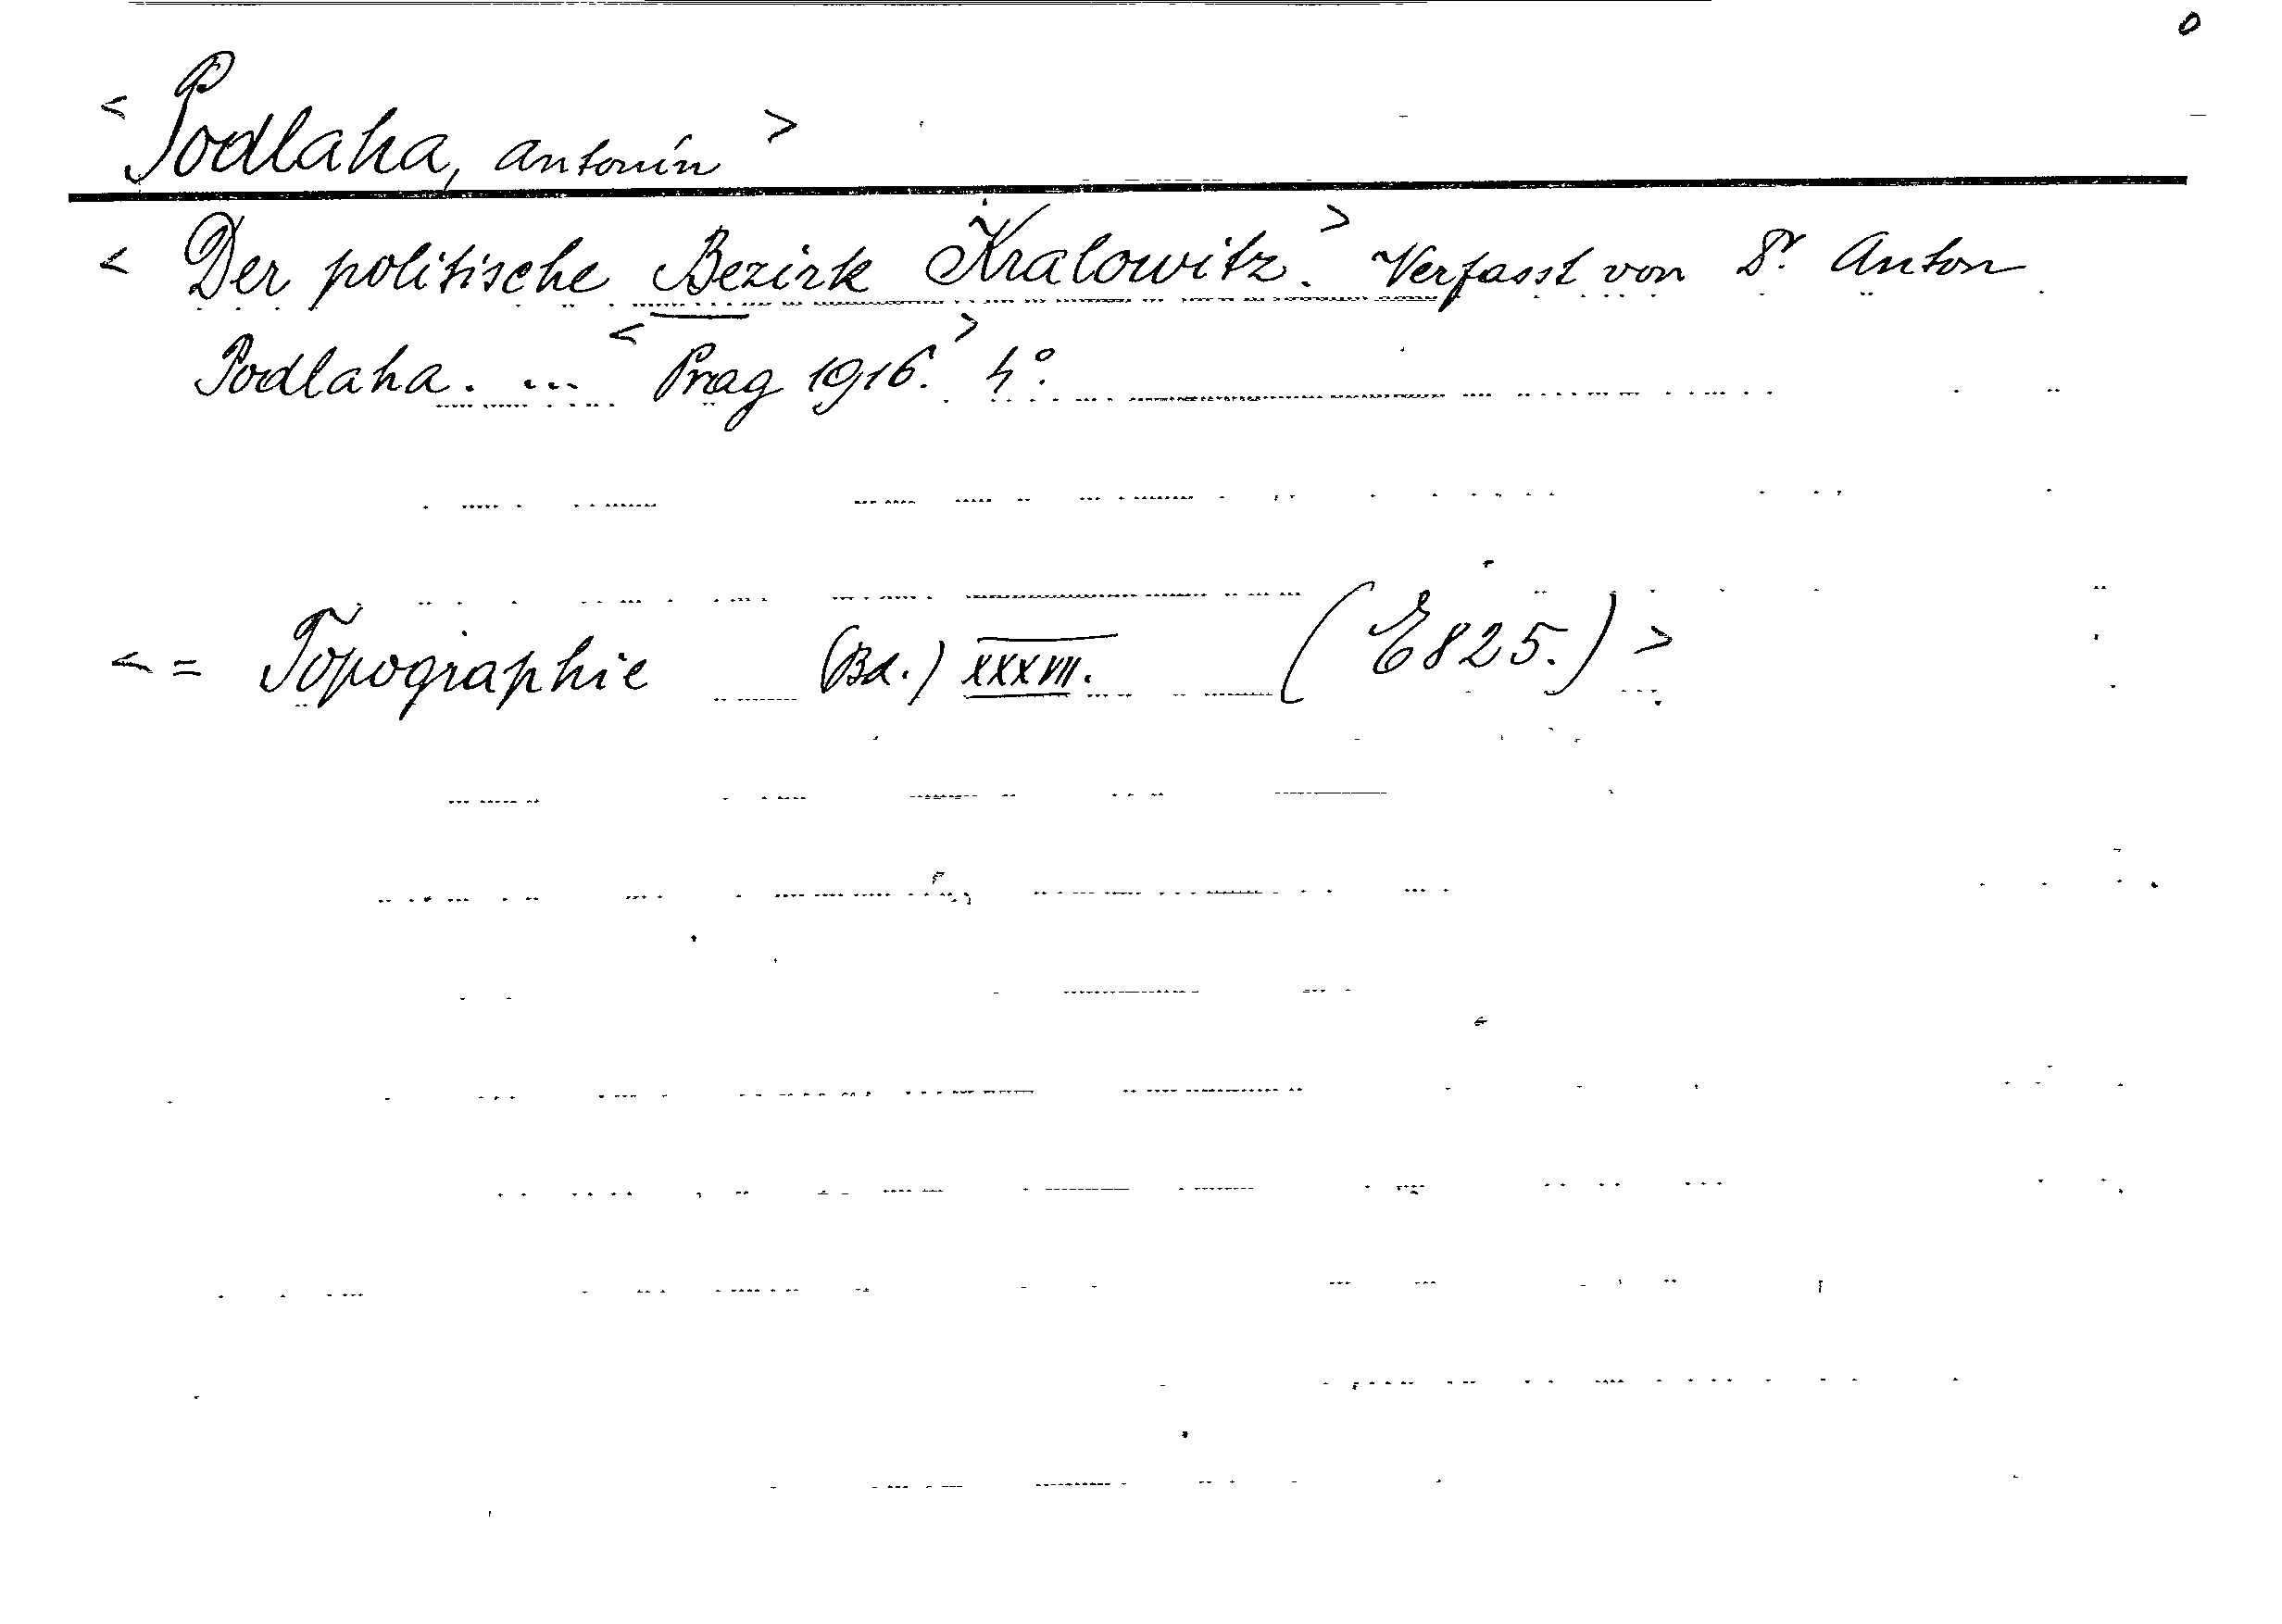 o
< Podlaha, Antonín >
< Der politische Bezirk Kralowitz. > Verfasst von Dr. Anton
Podlaha. ... < Prag 1916. > 4°.
< = Topographie (Bd.) XXXVII. (E825.) >